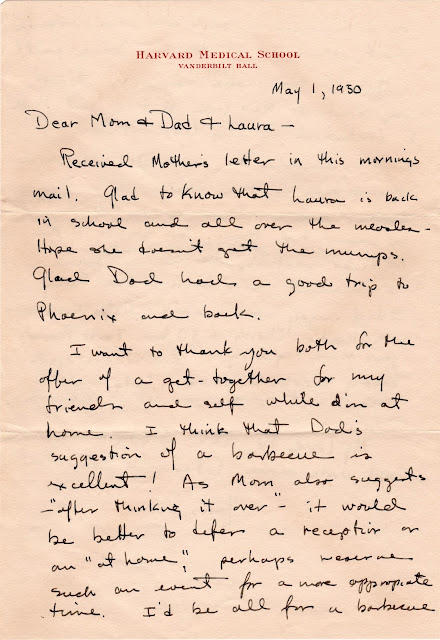 HARVARD MEDICAL SCHOOL
VANDERBILT HALL
May 1, 1950
Dear Mom & Dad & Laura —
Received Mother's letter in this mornings
mail. Glad to know that Laura is back
in school and all over the measles -
Hope she doesn't get the mumps.
Glad Dad had a good trip to
Phoenix and back.
I want to thank you both for the
offer of a get-together for my
friends and self while I'm at
home. I think that Dad's
suggestion of a barbecue is
excellent! As Mom also suggests
-"after thinking it over"- it would
be better to defer a reception or
an "at home", perhaps reserve
such an event for a more appropiate
time. I'd be all for a barbecue